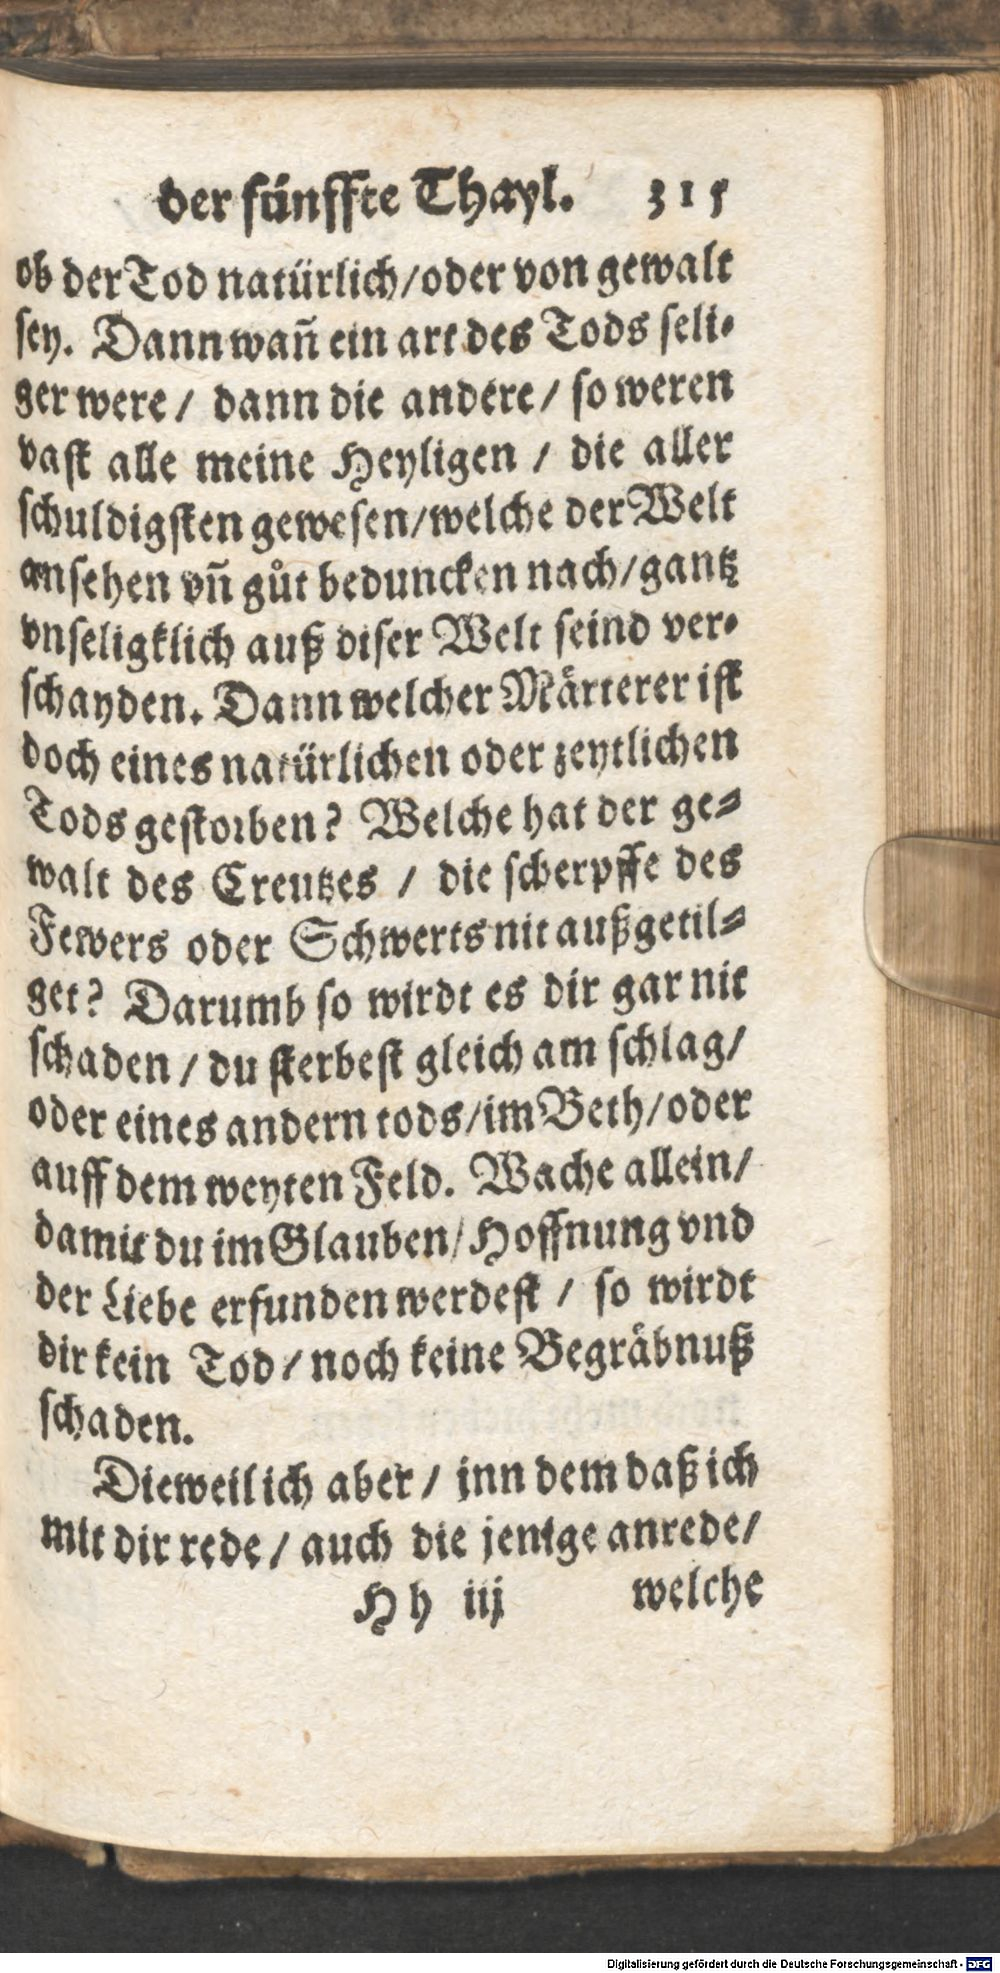 der fünffte Thayl. 315
ob der Tod natürlich/oder von gewalt
sey. Dann wañ ein art des Tods seli-
ger were/ dann die andere/ so weren
vast alle meine Heyligen / die aller
schuldigsten gewesen/welche der Welt
ansehen vñ gůt beduncken nach/gantz
vnseligklich auß diser Welt seind ver-
schayden. Dann welcher Märterer ist
doch eines natürlichen oder zeytlichen
Tods gestorben? Welche hat der ge-
walt des Creutzes / die scherpffe des
Fewers oder Schwerts nit außgetil-
get? Darumb so wirdt es dir gar nit
schaden / du sterbest gleich am schlag/
oder eines andern tods/im Beth/oder
auff dem weyten Feld. Wache allein/
damit du im Glauben/Hoffnung vnd
der Liebe erfunden werdest / so wirdt
dir kein Tod/noch keine Begräbnuß
schaden.
Dieweil ich aber/ jnn dem daß ich
mit dir rede/ auch die jenige anrede/
Hh iij welche
Digitalisierung gefördert durch die Deutsche Forschungsgemeinschaft - DFG